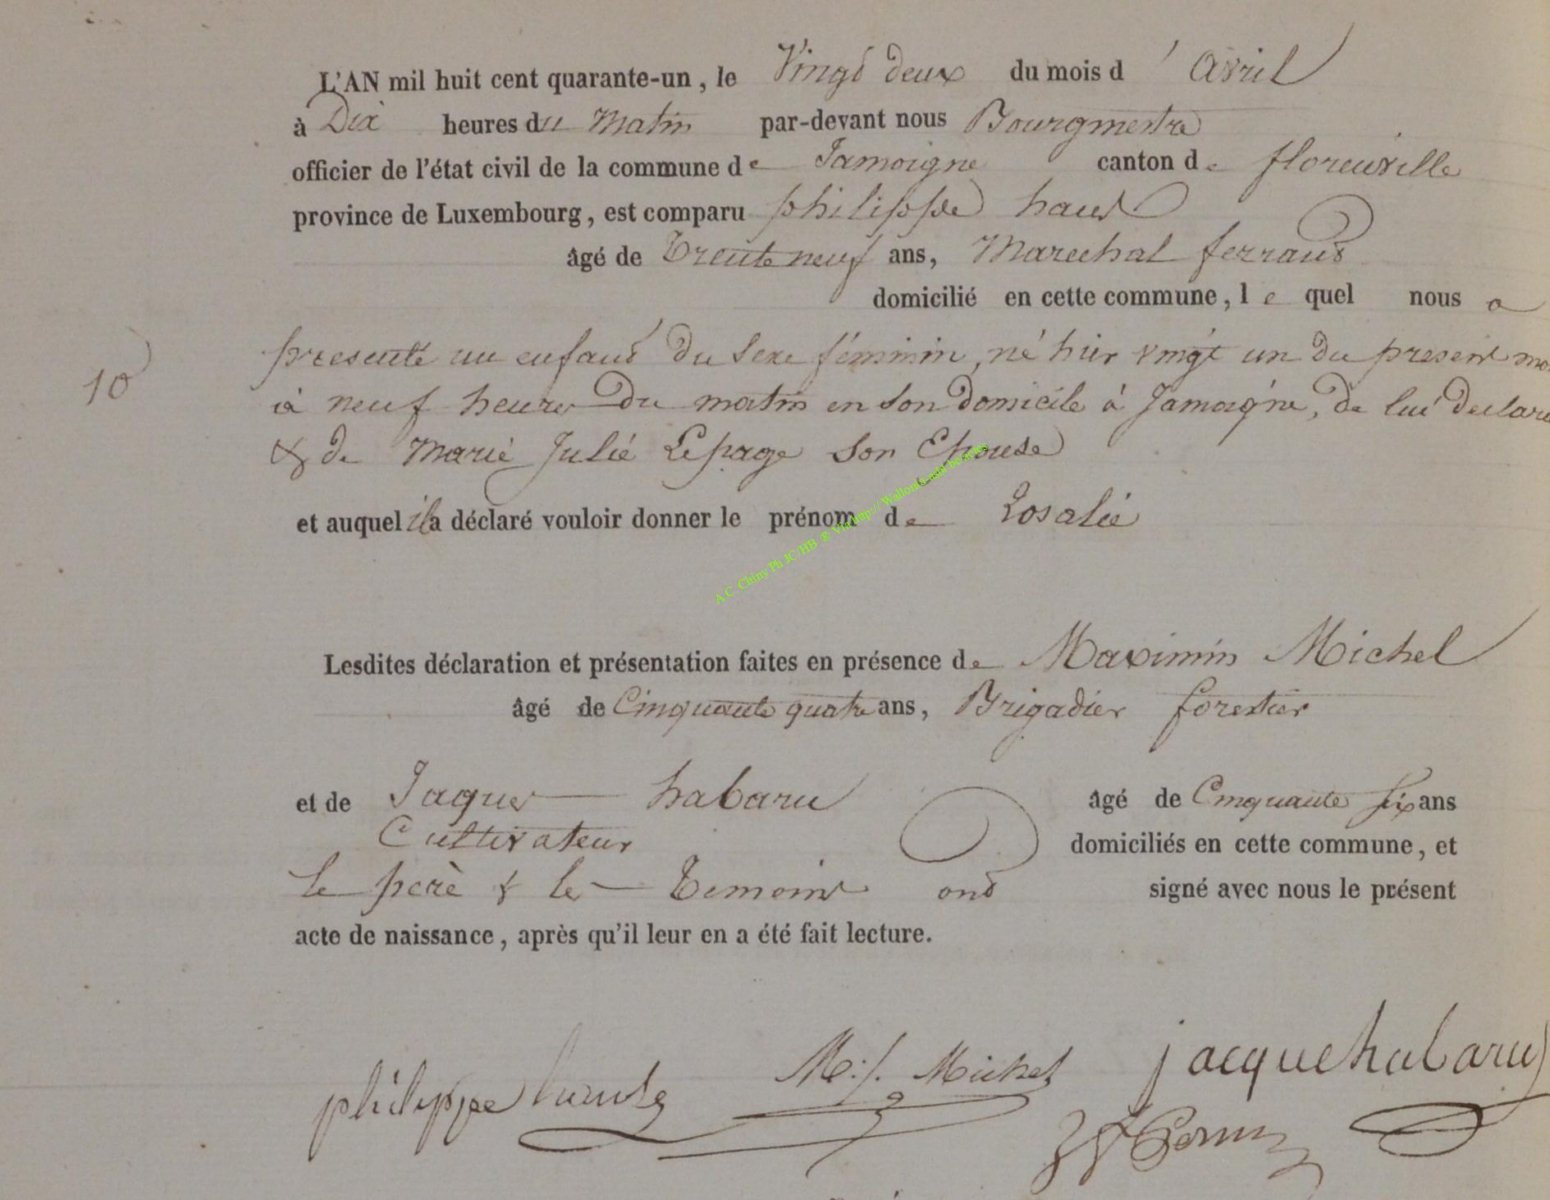 L'AN mil huit cent quarante-un, le Vingt deux du mois d'Avril
à Dix heures du Matin par-devant nous Bourgmestre
officier de l'état civil de la commune de Jamoigne canton de florenville
province de Luxembourg, est comparu philippe haus
âgé de Trente neuf ans, Marechal ferrant
domicilié en cette commune, le quel nous a
10 presenté un enfant du sexe féminin, né hier vingt un du present mois
à neuf heures du matin en son domicile à Jamoigne, de lui declarant
& de Marie Julie Lepage son Epouse
et auquel il a déclaré vouloir donner le prénom de Rosalie
A.C. Chiny Ph JC HB
Lesdites déclaration et présentation faites en présence de Maximin Michel
âgé de Cinquante quatre ans, Brigadier forestier
et de Jaques habaru âgé de Cinquante six ans
Cultivateur domiciliés en cette commune, et
le pere & les Temoins ont signé avec nous le présent
acte de naissance, après qu'il leur en a été fait lecture.
philippe M:f. Michel jacque habaru